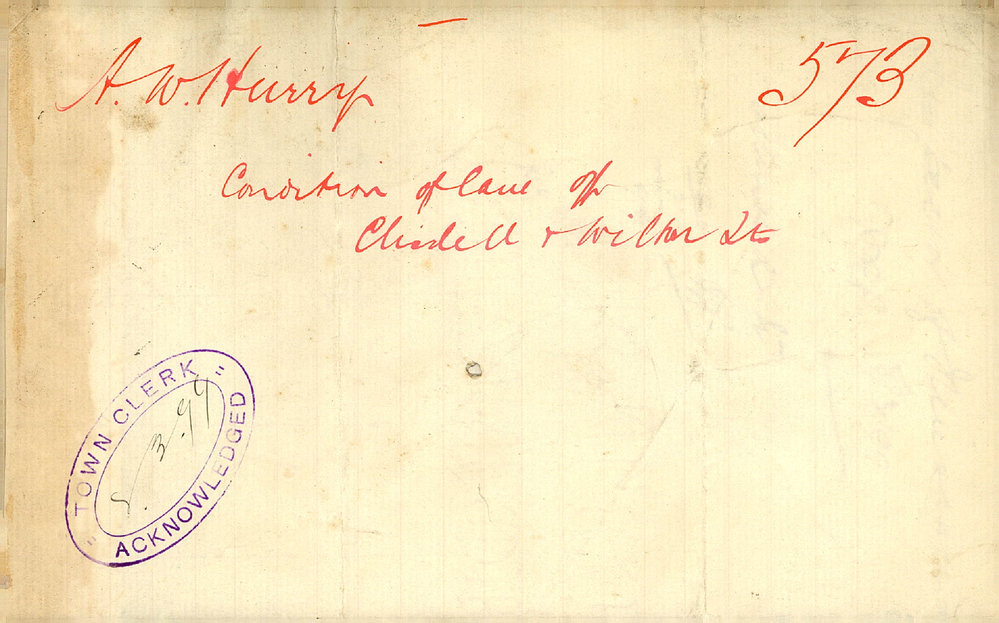 A. W. Hurry
573
Condition of lane off
Clisdell & Wilton Sts
"TOWN CLERK"
8. 3. 99
ACKNOWLEDGED